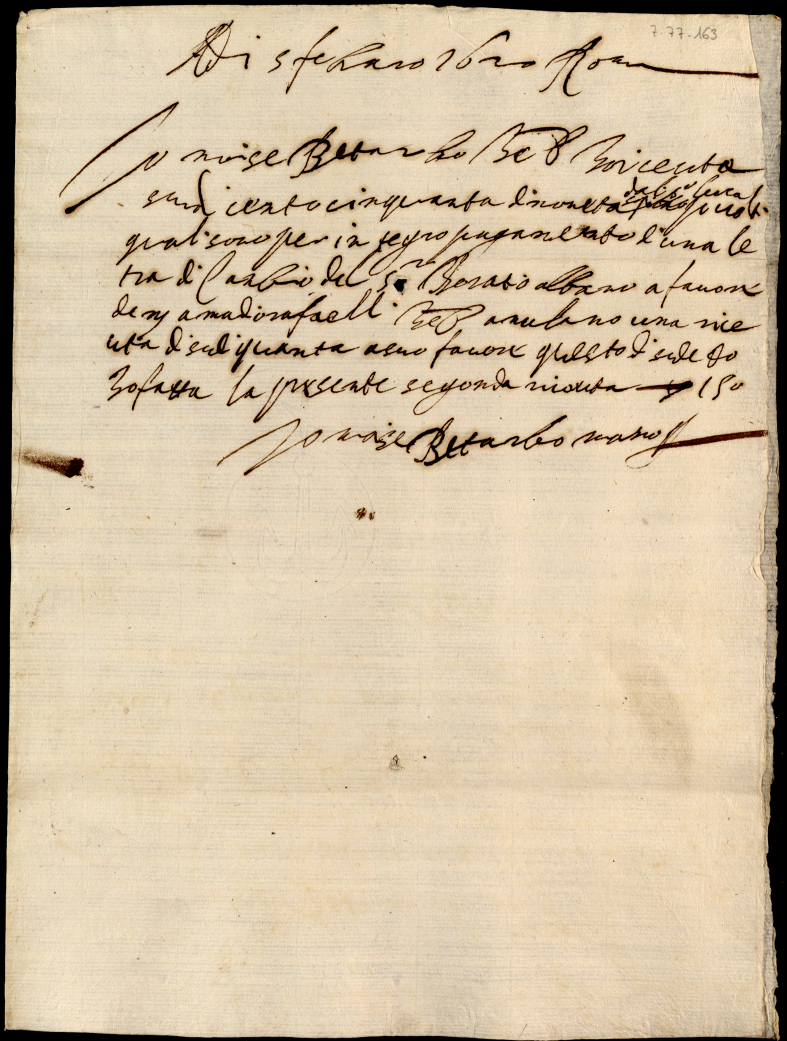 7-77-163
Adi 5 febraro 1620 Roma
Io moise Betarbo heb ho riceuto
scudi cento cinquanta di moneta quali
quali sono per integro pagamento d una le
tra di Cambio del Sr Horatio albano a favore
de mj amadio rafaelli heb anulano una rice
uta di scudi quanta a suo favore questo di sude to
ho fatta la presente segonda riceuta — 150
Io moise Betarbo mano